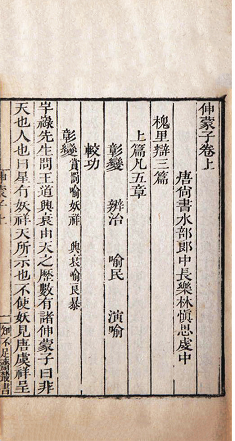 伸蒙子卷上
唐尚書水部郎中長樂林慎思虔中
槐里辯三篇
上篇凡五章
彰變 辨治 喻民 演喻
較功
彰變 賞罰喻妖祥 興衰喻良暴
芉祿先生問王道興衰由天之歷數有諸伸蒙子曰非
天也人也曰星有妖祥天所示也不使妖見唐虞祥呈
伸蒙子上
一 知不足齋叢書